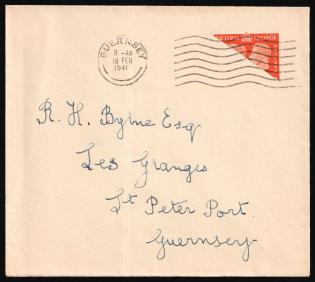 GUERNSEY
9 - AM
18 FEB
1941
VICTORIA GEORGE
R. H. Byrne Esq
Les Granges
St Peter Port.
Guernsey